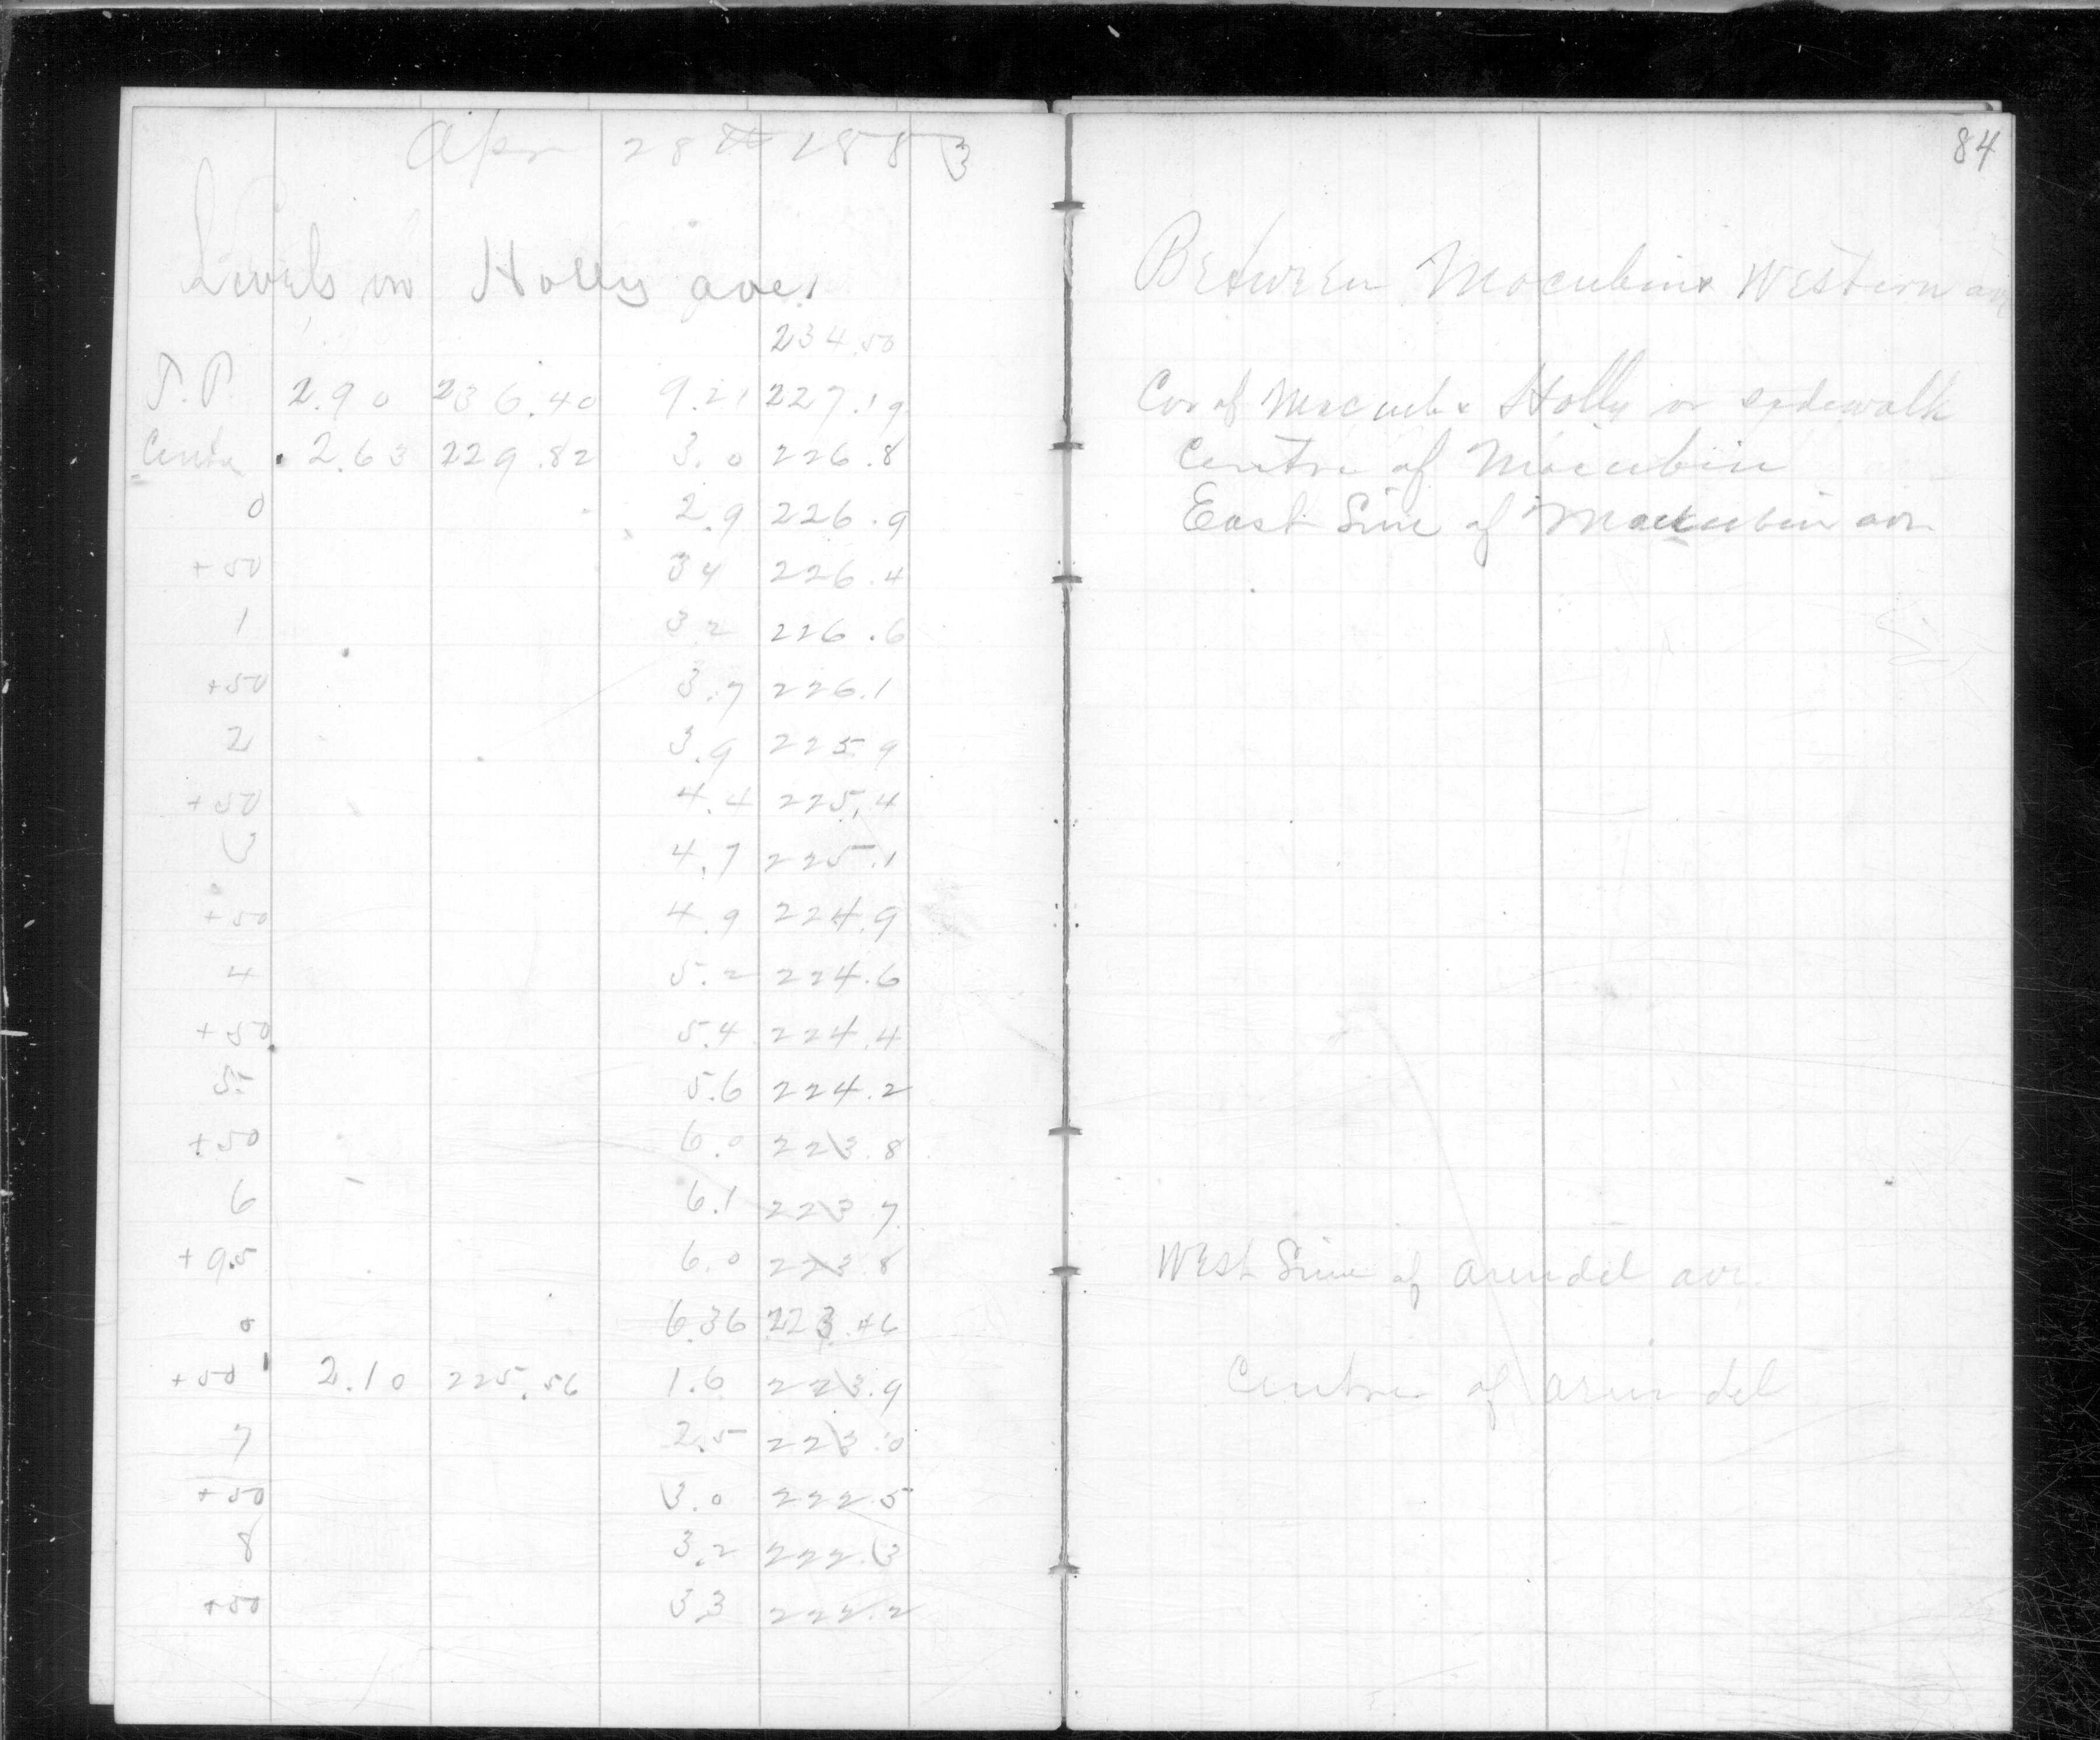 84
Apr 28th 1883
Levels on Holly ave.
Between Macubin & Western ave
234.50
T.P. 2.90 236.40 9.21 227.19 Cor of Macub & Holly on sidewalk
Centre 2.63 229.82 3.0 226.8 Centre of Macubin
0 2.9 226.9 East Line of Macubin ave
+50 3 4 226.4
1 3.2 226.6
+50 3.7 226.1
2 3.9 225 9
+50 4.4 225.4
3 4.7 225.1
+50 4.9 224.9
4 5.2 224.6
+50 5.4 224.4
5 5.6 224.2
+50 6.0 223.8
6 6.1 223 7
+9.5 6.0 223.8 West Line of arundel ave.
6.36 223.46
+50 2.10 225.56 1.6 223.9 Centre of arundel
7 2.5 223.0
+50 3.0 222.5
8 3.2 222.3
+50 3.3 222.2